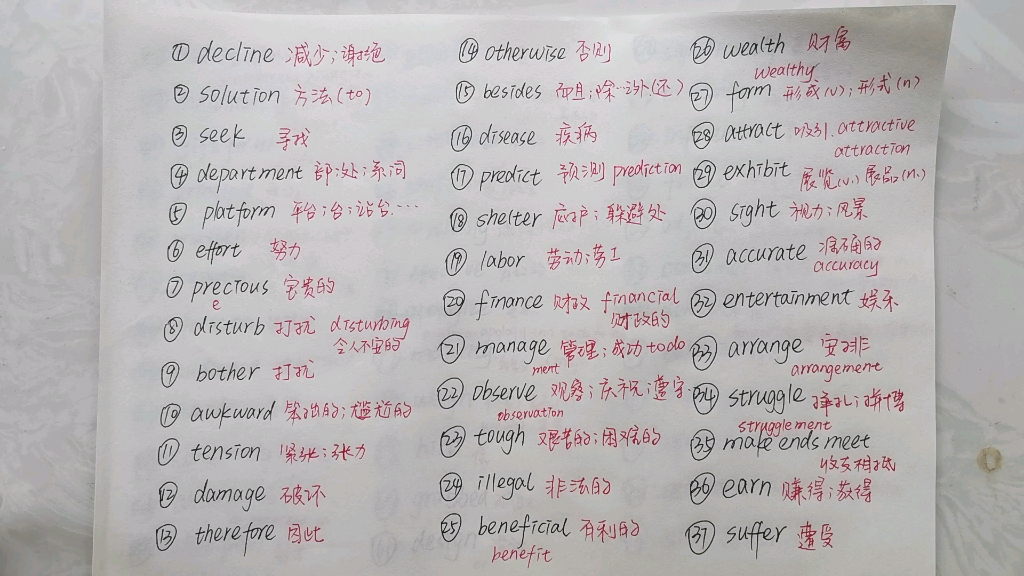 ① decline 减少;谢绝
② solution 方法(to)
③ seek 寻找
④ department 部;处;系词
⑤ platform 平台;台;站台…
⑥ effort 努力
⑦ precious 宝贵的
e
⑧ disturb 打扰 disturbing
令人不安的
⑨ bother 打扰
⑩ awkward 笨拙的;尴尬的
⑪ tension 紧张;张力
⑫ damage 破坏
⑬ therefore 因此
⑭ otherwise 否则
⑮ besides 而且;除…外(还)
⑯ disease 疾病
⑰ predict 预测 prediction
⑱ shelter 庇护;躲避处
⑲ labor 劳动;劳工
⑳ finance 财政 financial
财政的
㉑ manage 管理;成功 to do
ment
㉒ observe 观察;庆祝;遵守
observation
㉓ tough 艰苦的;困难的
㉔ illegal 非法的
㉕ beneficial 有利的
benefit
㉖ wealth 财富
wealthy
㉗ form 形成(v);形式(n)
㉘ attract 吸引 attractive
attraction
㉙ exhibit 展览(v.) 展品(n.)
㉚ sight 视力;风景
㉛ accurate 准确的
accuracy
㉜ entertainment 娱乐
㉝ arrange 安排
arrangement
㉞ struggle 挣扎;拼搏
strugglement
㉟ make ends meet
收支相抵
㊱ earn 赚得;获得
㊲ suffer 遭受